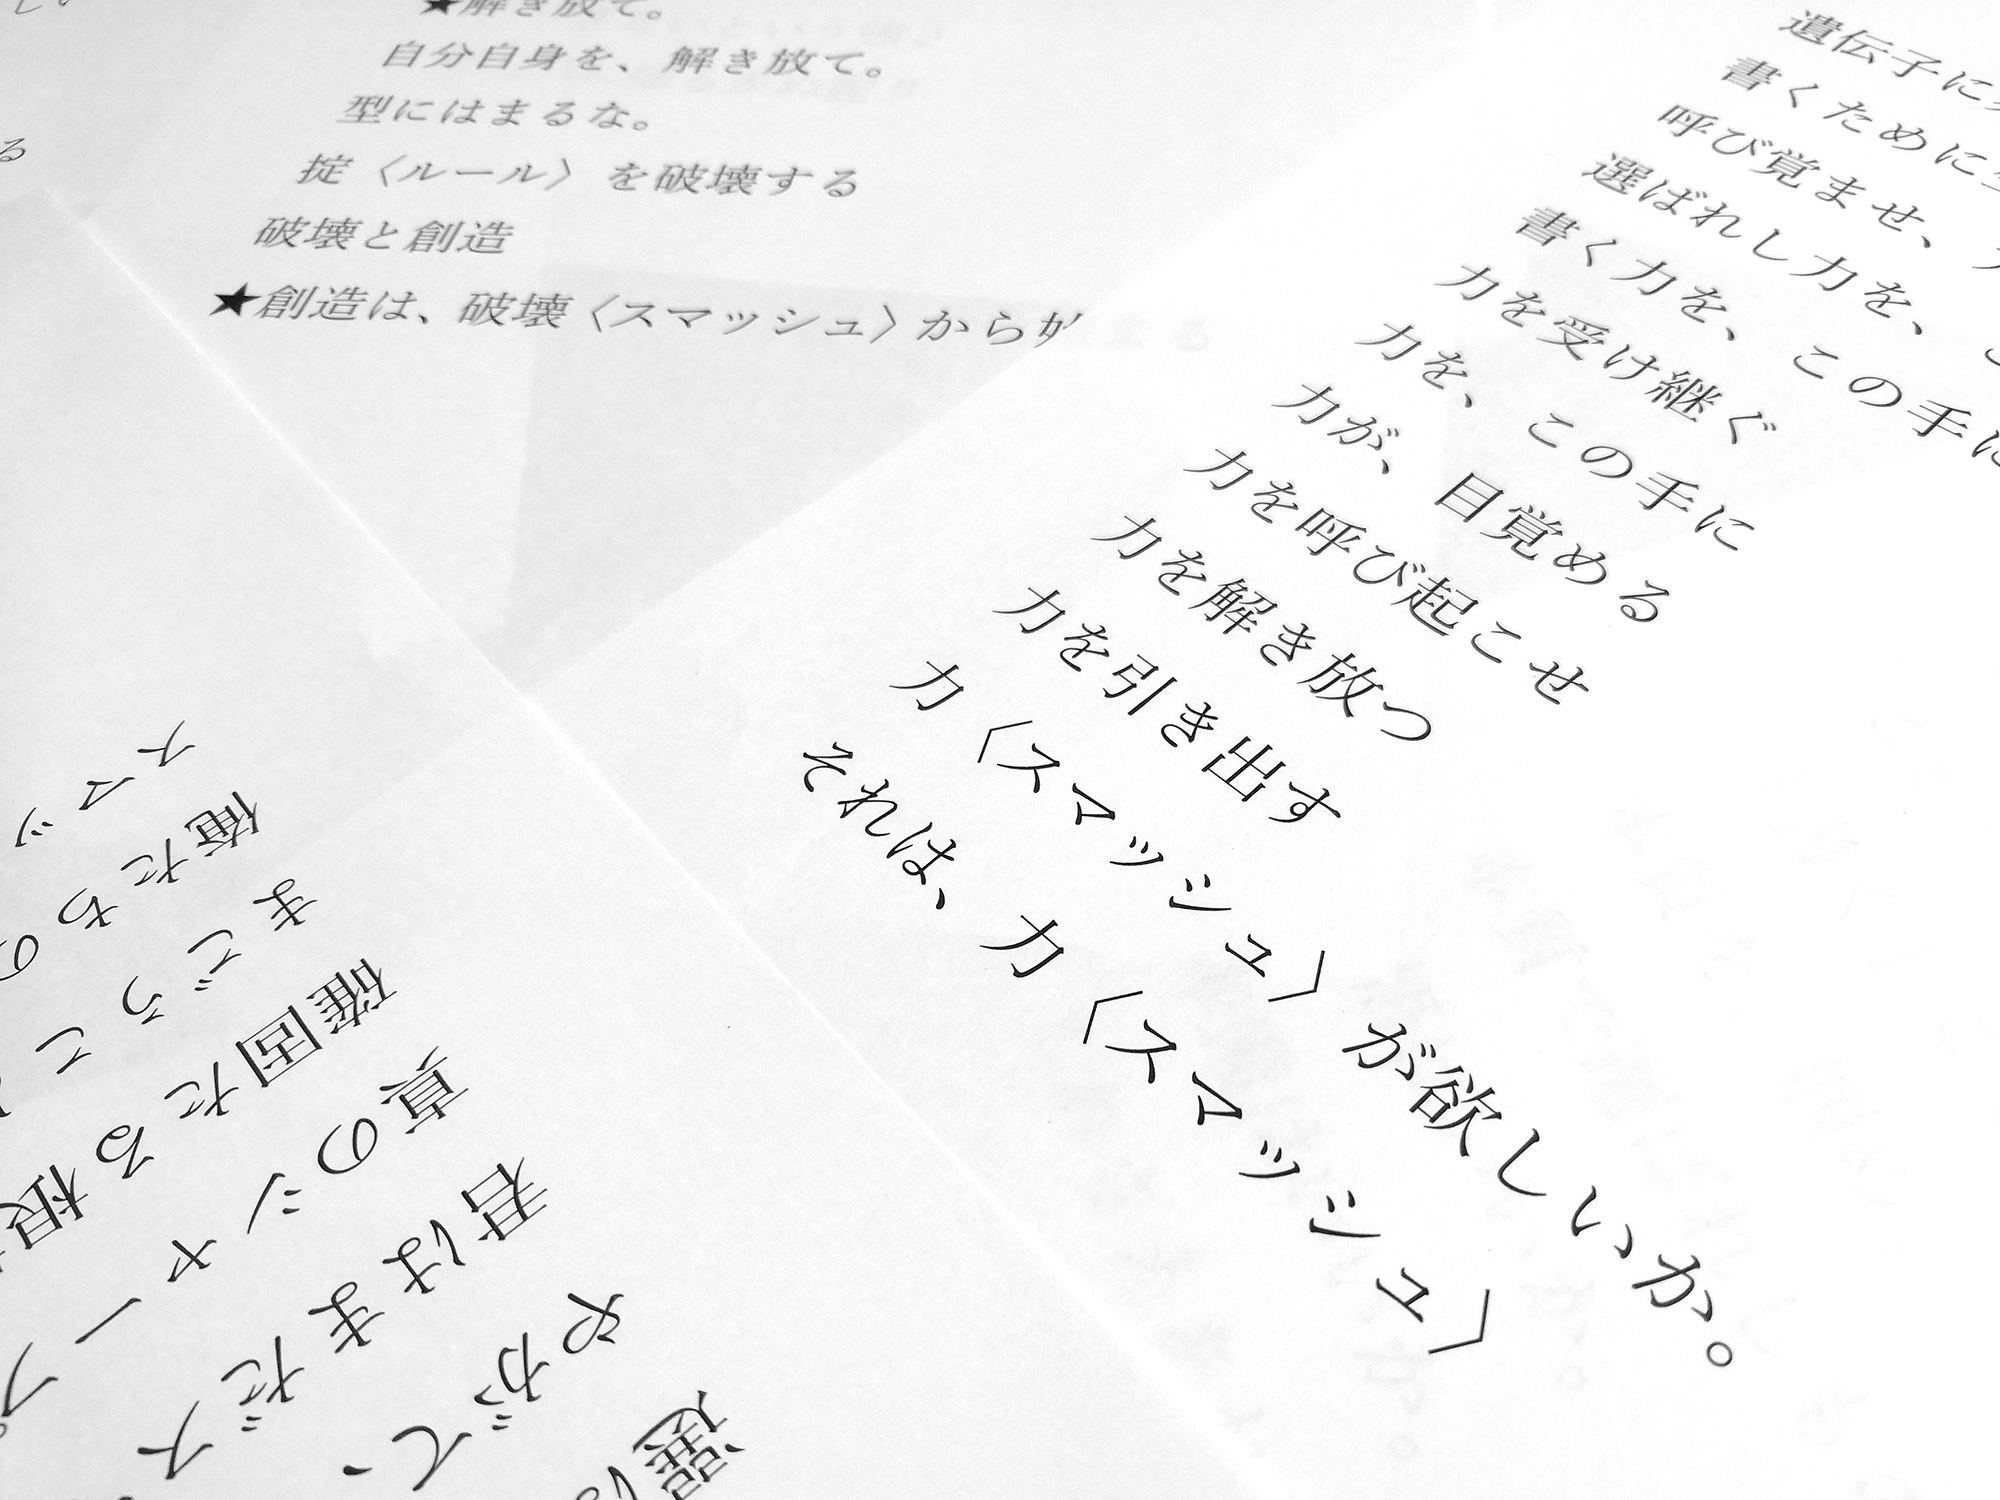 ★解き放て。
自分自身を、解き放て。
型にはまるな。
掟〈ルール〉を破壊する
破壊と創造
★創造は、破壊〈スマッシュ〉から
遺伝子に
書くために
呼び覚ませ、
選ばれし力を、
書く力を、この手に
力を受け継ぐ
力を、この手に
力が、目覚める
力を呼び起こせ
力を解き放つ
力を引き出す
力〈スマッシュ〉が欲しいか。
それは、力〈スマッシュ〉
選ば
やがて、
君はまだス
真のシャープ
確固たる根
まどうこ
俺たちの
スマッ